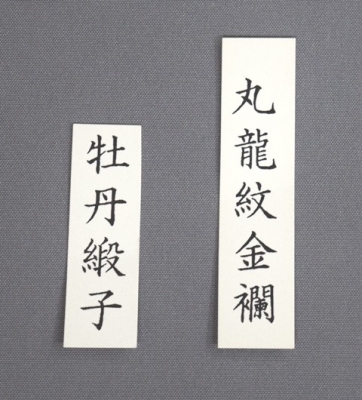 丸龍紋金襴
牡丹緞子